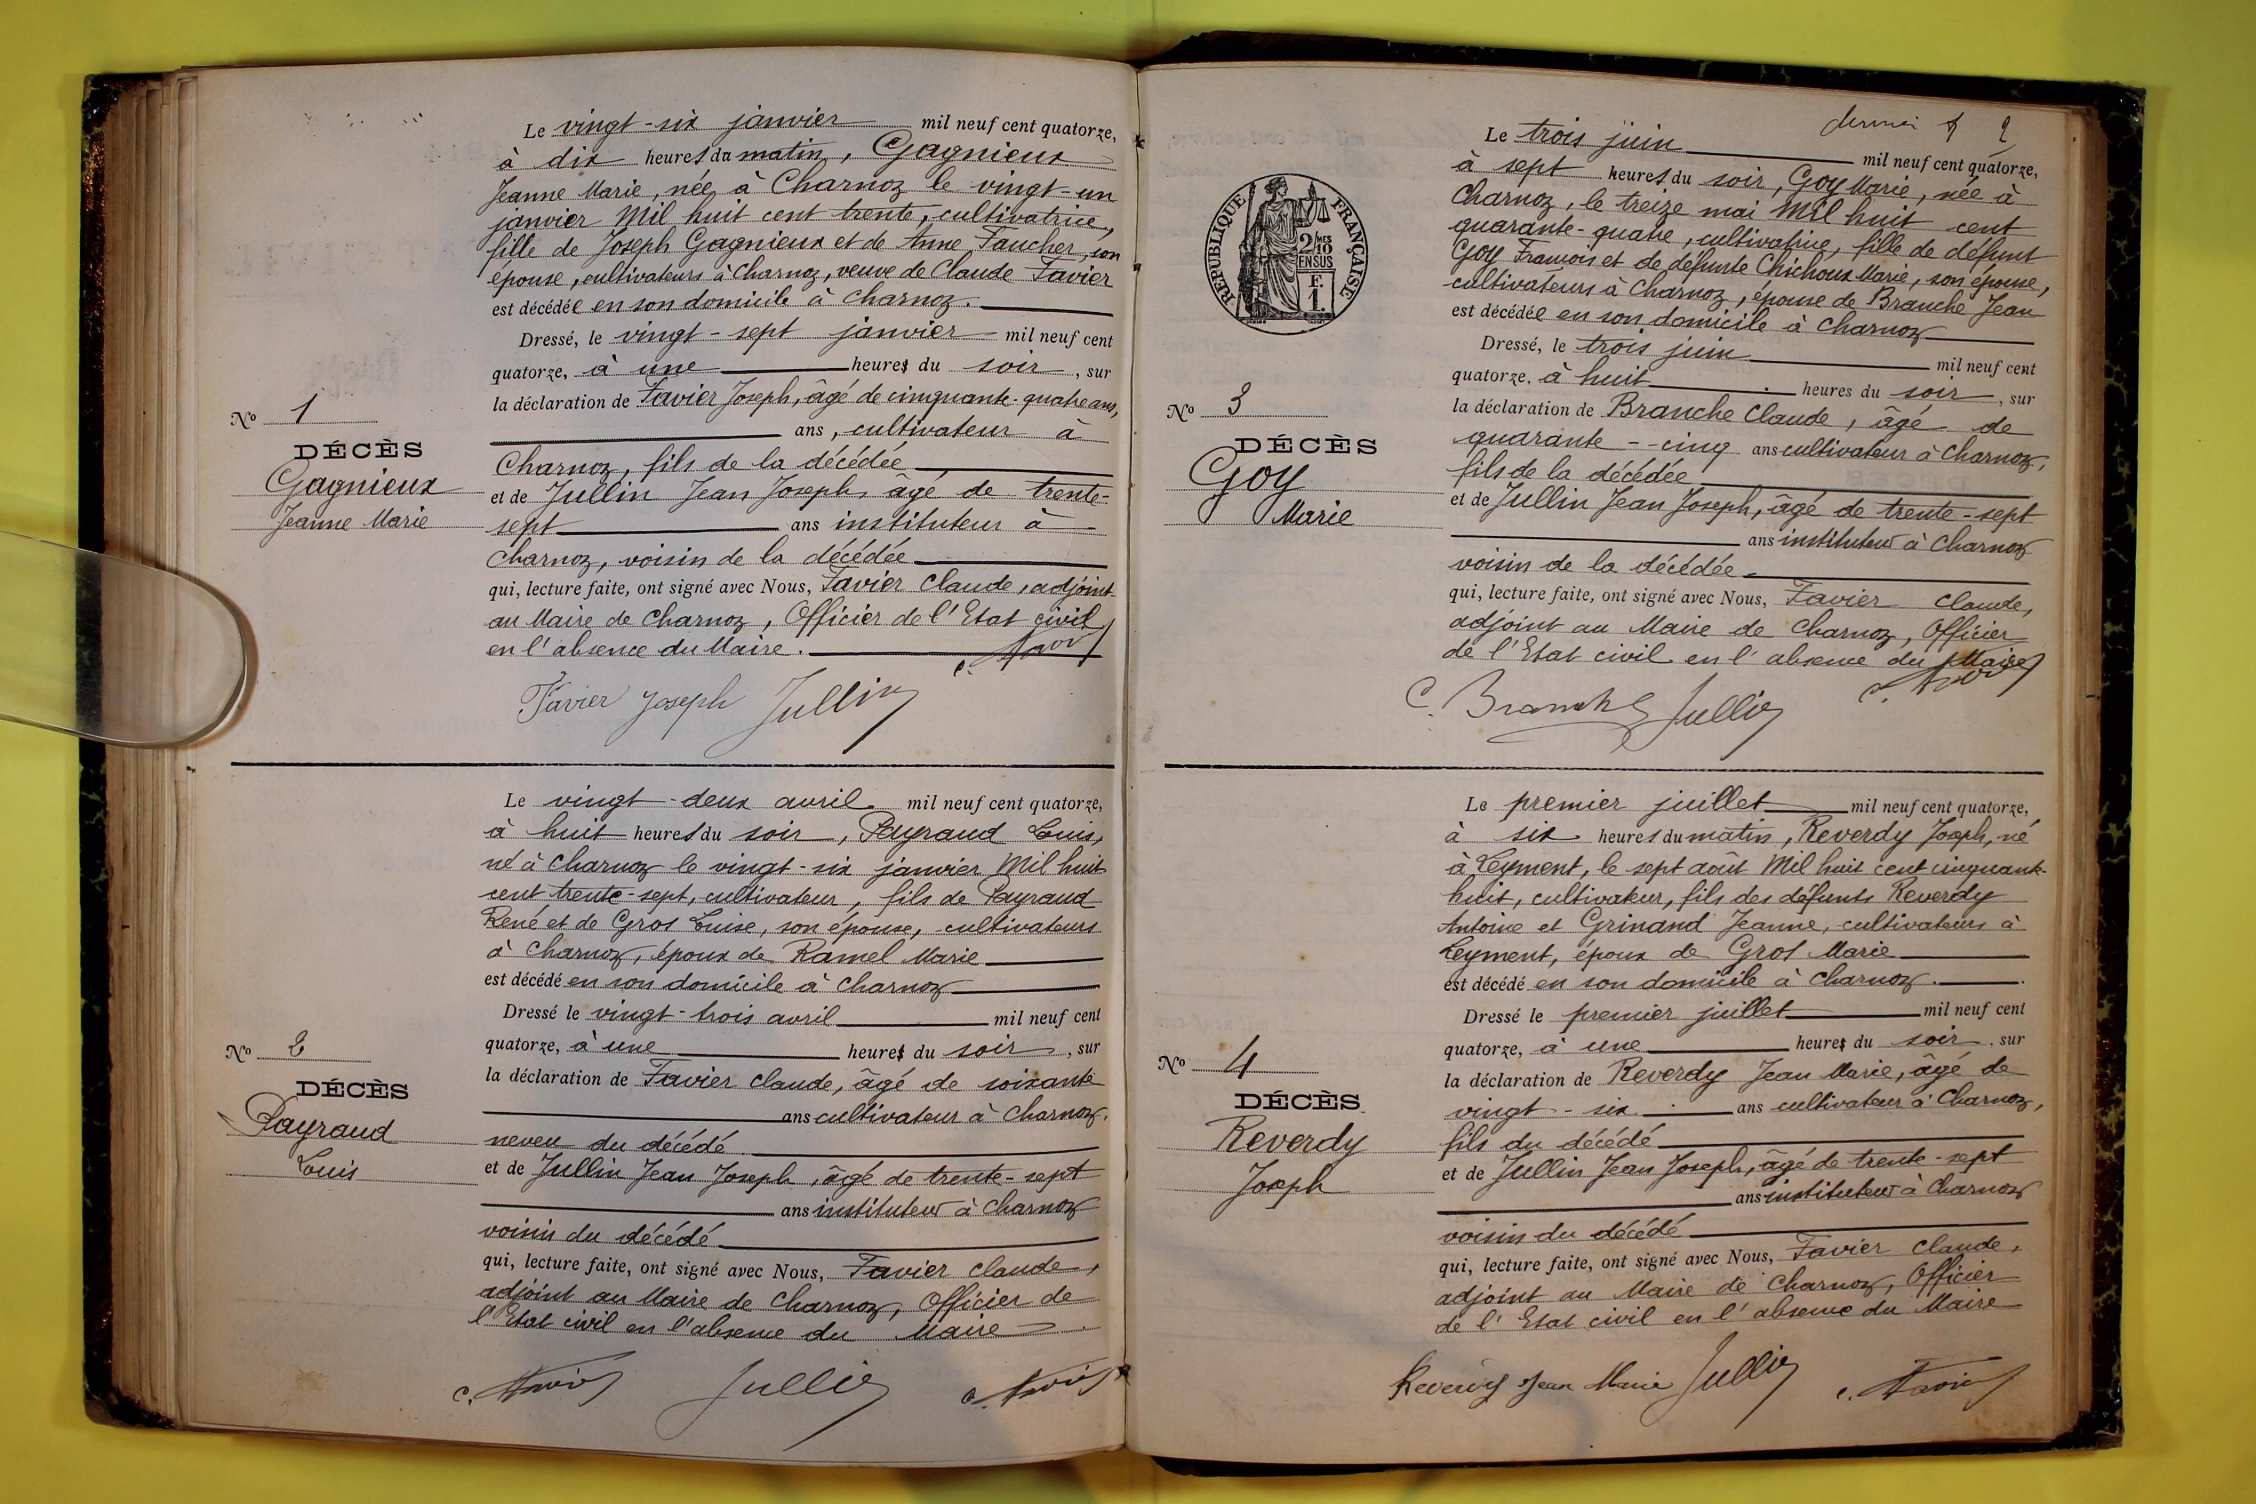 Le vingt-six janvier mil neuf cent quatorze,
à dix heures du matin, Gagnieux
Jeanne Marie, née à Charnoz le vingt-un
janvier Mil huit cent trente, cultivatrice,
fille de Joseph Gagnieux et de Anne Faucher, son
épouse, cultivateurs à Charnoz, veuve de Claude Favier
est décédée en son domicile à Charnoz.
Dressé, le vingt-sept janvier mil neuf cent
quatorze, à une heures du soir, sur
la déclaration de Favier Joseph, âgé de cinquante-quatre ans,
ans, cultivateur à
Charnoz, fils de la décédée
et de Jullin Jean Joseph, âgé de trente-
sept ans instituteur à
Charnoz, voisin de la décédée
qui, lecture faite, ont signé avec Nous, Favier Claude, adjoint
au Maire de Charnoz, Officier de l'Etat civil
en l'absence du Maire.
C. Favier
Favier Joseph Jullin
No 1
DÉCÈS
Gagnieux
Jeanne Marie
Le vingt-deux avril mil neuf cent quatorze,
à huit heures du soir, Payraud Louis,
né à Charnoz le vingt-six janvier Mil huit
cent trente-sept, cultivateur, fils de Payraud
René et de Gros Louise, son épouse, cultivateurs
à Charnoz, époux de Ramel Marie
est décédé en son domicile à Charnoz
Dressé le vingt-trois avril mil neuf cent
quatorze, à une heures du soir, sur
la déclaration de Favier Claude, âgé de soixante
ans cultivateur à Charnoz,
neveu du décédé
et de Jullin Jean Joseph, âgé de trente-sept
ans instituteur à Charnoz
voisin du décédé
qui, lecture faite, ont signé avec Nous, Favier Claude,
adjoint au Maire de Charnoz, Officier de
l'Etat civil en l'absence du Maire
C. Favier Jullin C. Favier
No 2
DÉCÈS
Payraud
Louis
2
Le trois juin mil neuf cent quatorze,
à sept heures du soir, Goy Marie, née à
Charnoz, le treize mai Mil huit cent
quarante-quatre, cultivatrice, fille de défunt
Goy François et de défunte Chichoux Marie, son épouse,
cultivateurs à Charnoz, épouse de Branche Jean
est décédée en son domicile à Charnoz
Dressé, le trois juin mil neuf cent
quatorze, à huit heures du soir, sur
la déclaration de Branche Claude, âgé de
quarante--cinq ans cultivateur à Charnoz,
fils de la décédée
et de Jullin Jean Joseph, âgé de trente-sept
ans instituteur à Charnoz
voisin de la décédée
qui, lecture faite, ont signé avec Nous, Favier Claude,
adjoint au Maire de Charnoz, Officier
de l'Etat civil en l'absence du Maire
C. Favier
C. Branche Jullin
RÉPUBLIQUE FRANÇAISE
2/10MES
EN SUS
F.
1.
No 3
DÉCÈS
Goy
Marie
Le premier juillet mil neuf cent quatorze,
à six heures du matin, Reverdy Joseph, né
à Leyment, le sept août Mil huit cent cinquante-
huit, cultivateur, fils des défunts Reverdy
Antoine et Grinand Jeanne, cultivateurs à
Leyment, époux de Gros Marie
est décédé en son domicile à Charnoz.
Dressé le premier juillet mil neuf cent
quatorze, à une heures du soir, sur
la déclaration de Reverdy Jean Marie, âgé de
vingt-six ans cultivateur à Charnoz,
fils du décédé
et de Jullin Jean Joseph, âgé de trente-sept
ans instituteur à Charnoz
voisin du décédé
qui, lecture faite, ont signé avec Nous, Favier Claude,
adjoint au Maire de Charnoz, Officier
de l'Etat civil en l'absence du Maire
Reverdy Jean Marie Jullin C. Favier
No 4
DÉCÈS
Reverdy
Joseph